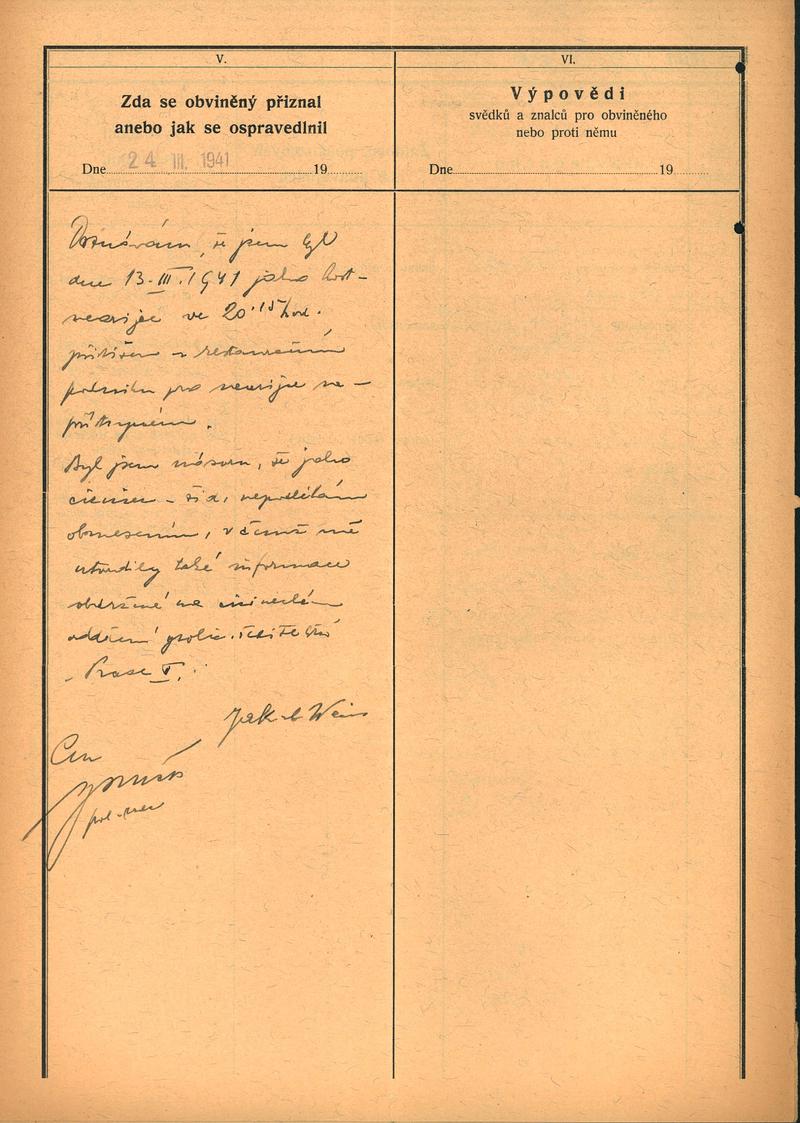 V.
Zda se obviněný přiznal
anebo jak se ospravedlnil
Dne 24 III. 1941 19
VI.
Výpovědi
svědků a znalců pro obviněného
nebo proti němu
Dne 19
Doznávám, že jsem byl
dne 13.III.1941 jako host-
nearijec ve 20.15 hod.
přistižen v restauračním
podniku pro nearijce ne-
přístupném.
Byl jsem názoru, že jako
cizinec - žid, nepodléhám
omezením, v čemž mě
utvrdily také informace
obdržené na cizineckém
oddělení polic. ředitelství
v Praze
Jakob Weiss